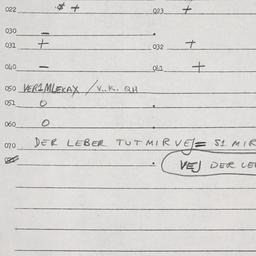 022 * + 023 +
030 —
031 + 032 +
040 — 041 +
050 VER1MLEKAX / V.K. QH
051 O
060 O
070 DER LEBER TUT MIR VEJ = S1 MIR
VEJ DER LEB